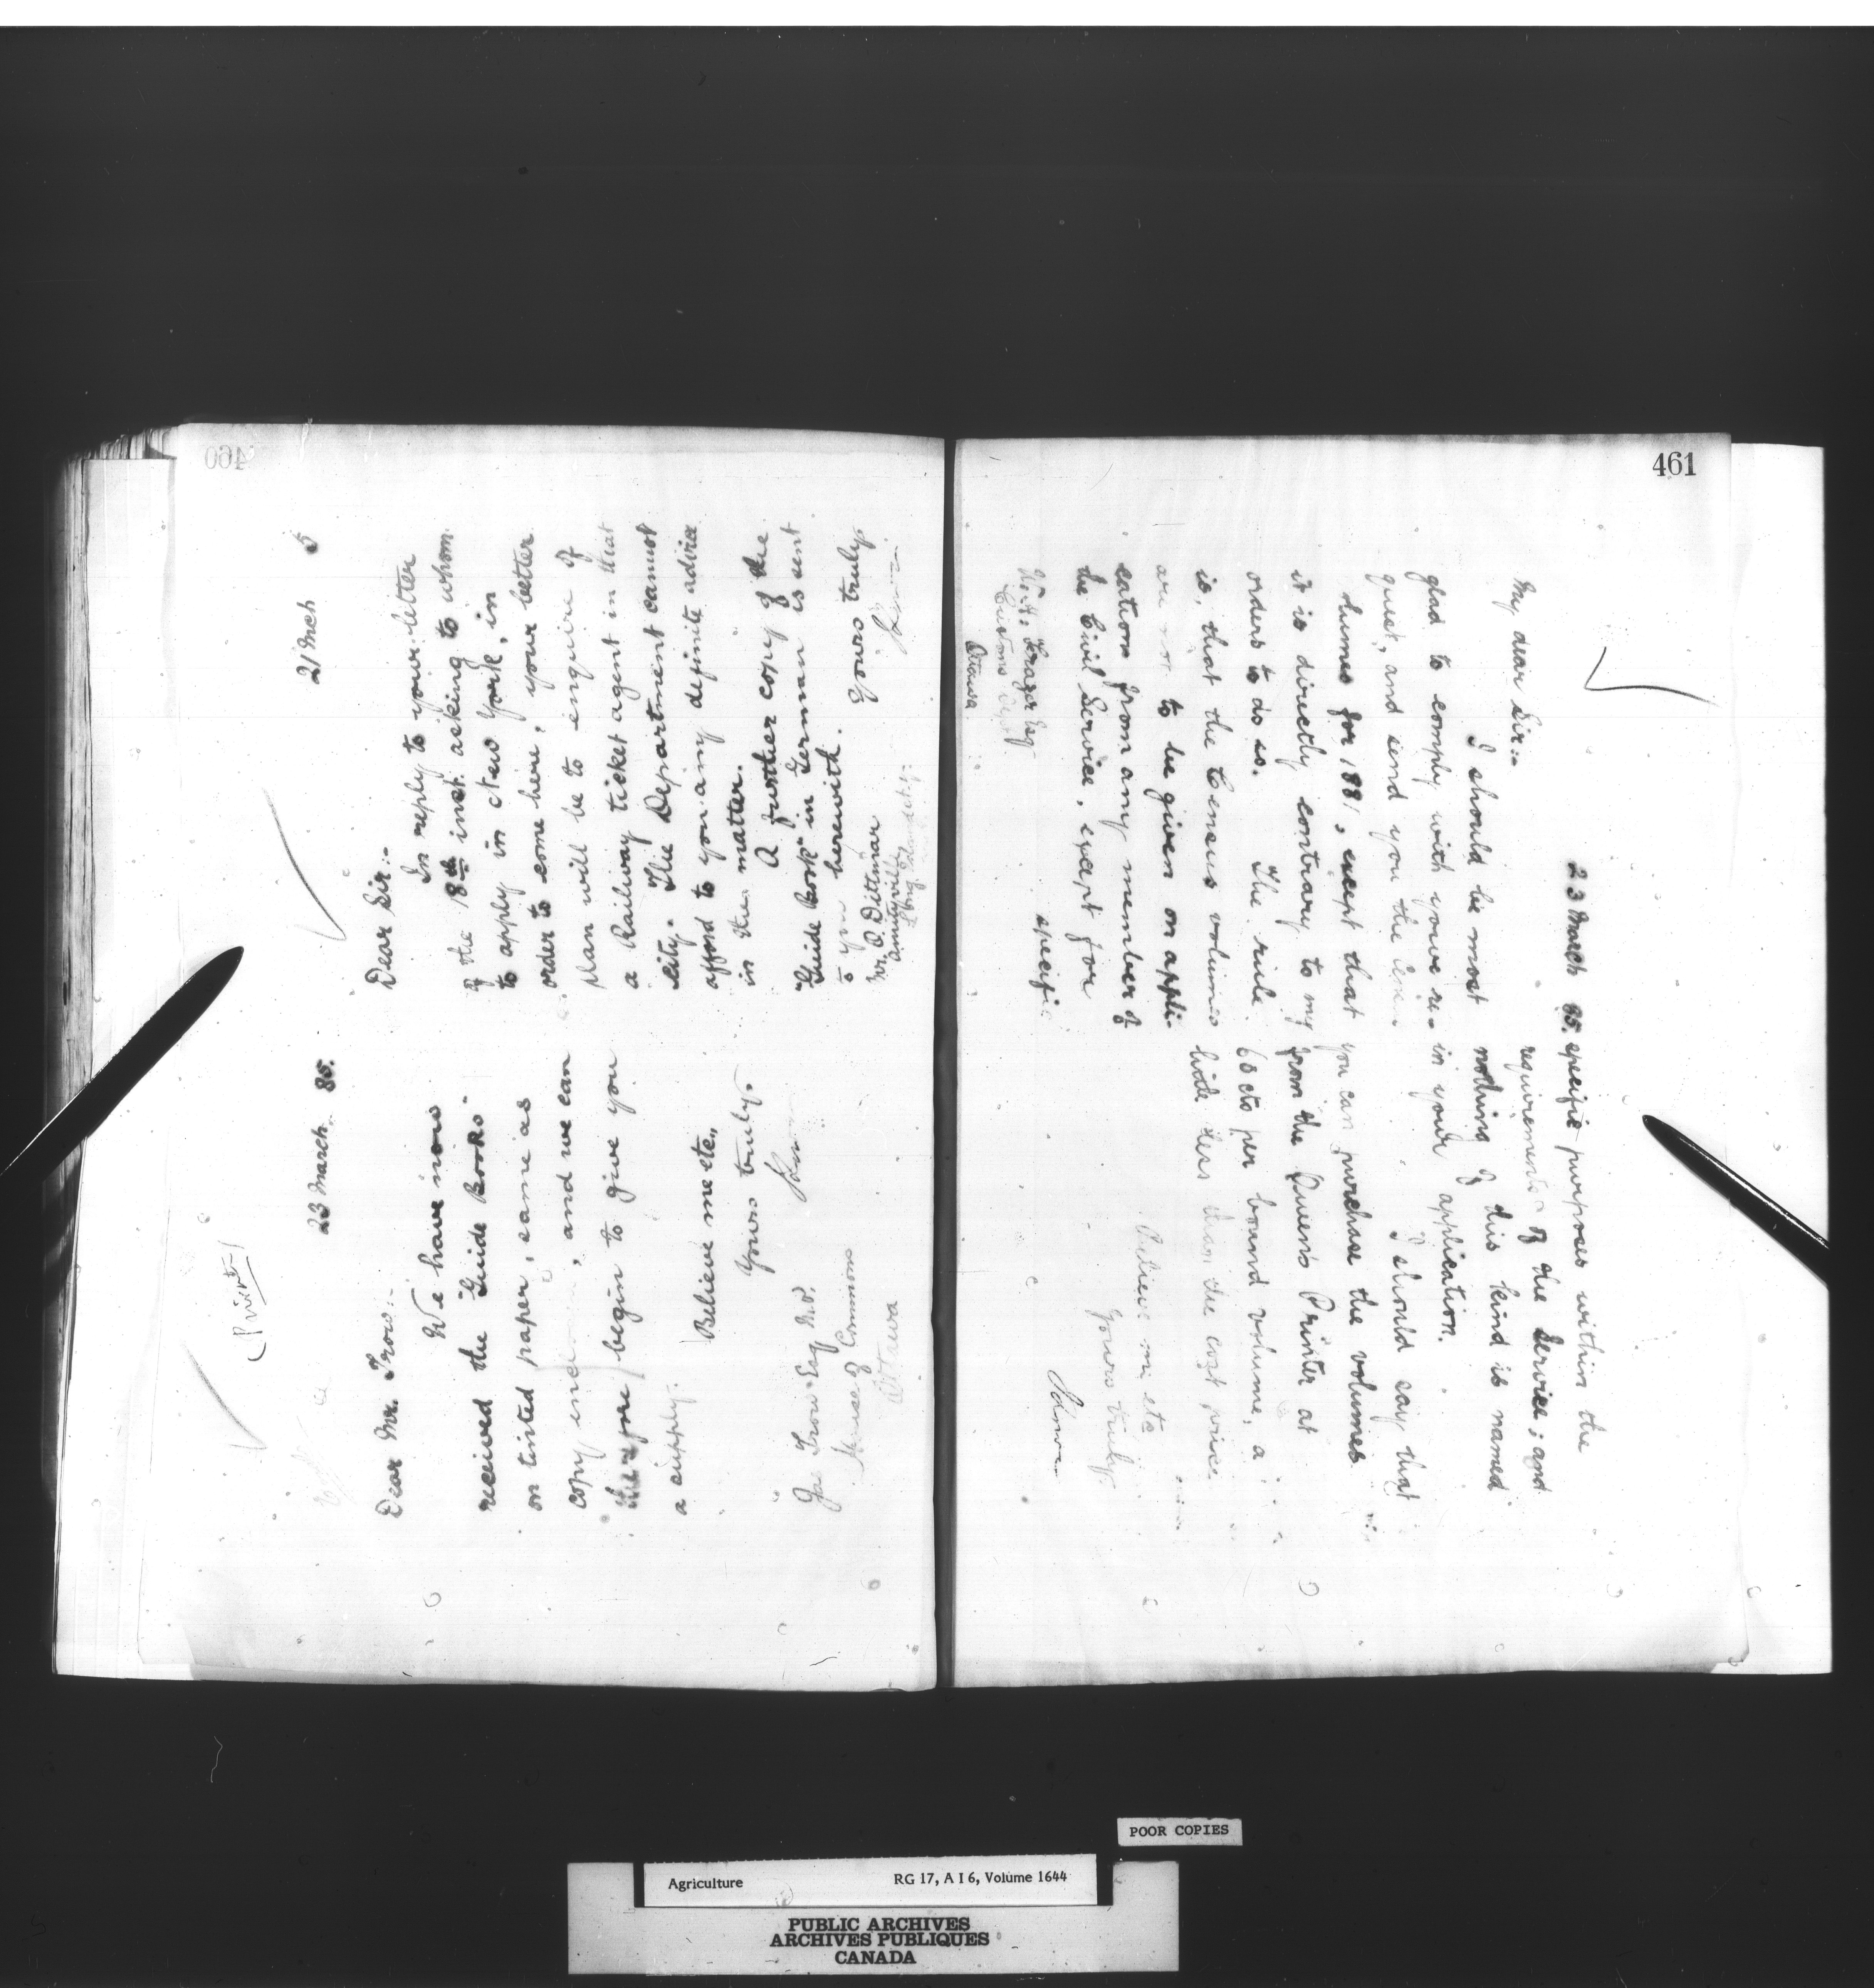 460
23 March 85.
(Private)
Dear Mr. Trow:-
We have now
received the "Guide Books"
on tinted paper, same as
copy , and we can
therefore begin to give you
a supply.
Believe me etc.,
Yours truly,
Jas Trow Esq M.P.
House of Commons
Ottawa
21 Mch 5
Dear Sir:-
In reply to your letter
of the 18th inst. asking to whom
to apply in New York, in
order to come here, your better
plan will be to enquire of
a Railway ticket agent in that
city. The Department cannot
afford to you any definite advice
in the matter.
A further copy of the
"Guide Book" in German is sent
to you herewith.
Yours truly,
Mr. O. Dittmar
Amityville
Long Island
461
23 March 85.
My dear Sir:-
I should be most
glad to comply with your re-
quest, and send you the
lumes for 1881, except that
it is directly contrary to my
orders to do so. The rule
is, that the Census volumes
are not to be given on appli-
cation from any member of
the Civil Service, except for
specific
W. H. Esq
Customs Dept
Ottawa
specific purposes within the
requirements of the Service; and
nothing of this kind is named
in your application.
I should say that
you can purchase the volumes
from the Queen's Printer at
60 cts per bound volume, a
little less than the cost price.
Believe me etc
Yours truly,
POOR COPIES
Agriculture RG 17, A I 6, Volume 1644
PUBLIC ARCHIVES
ARCHIVES PUBLIQUES
CANADA